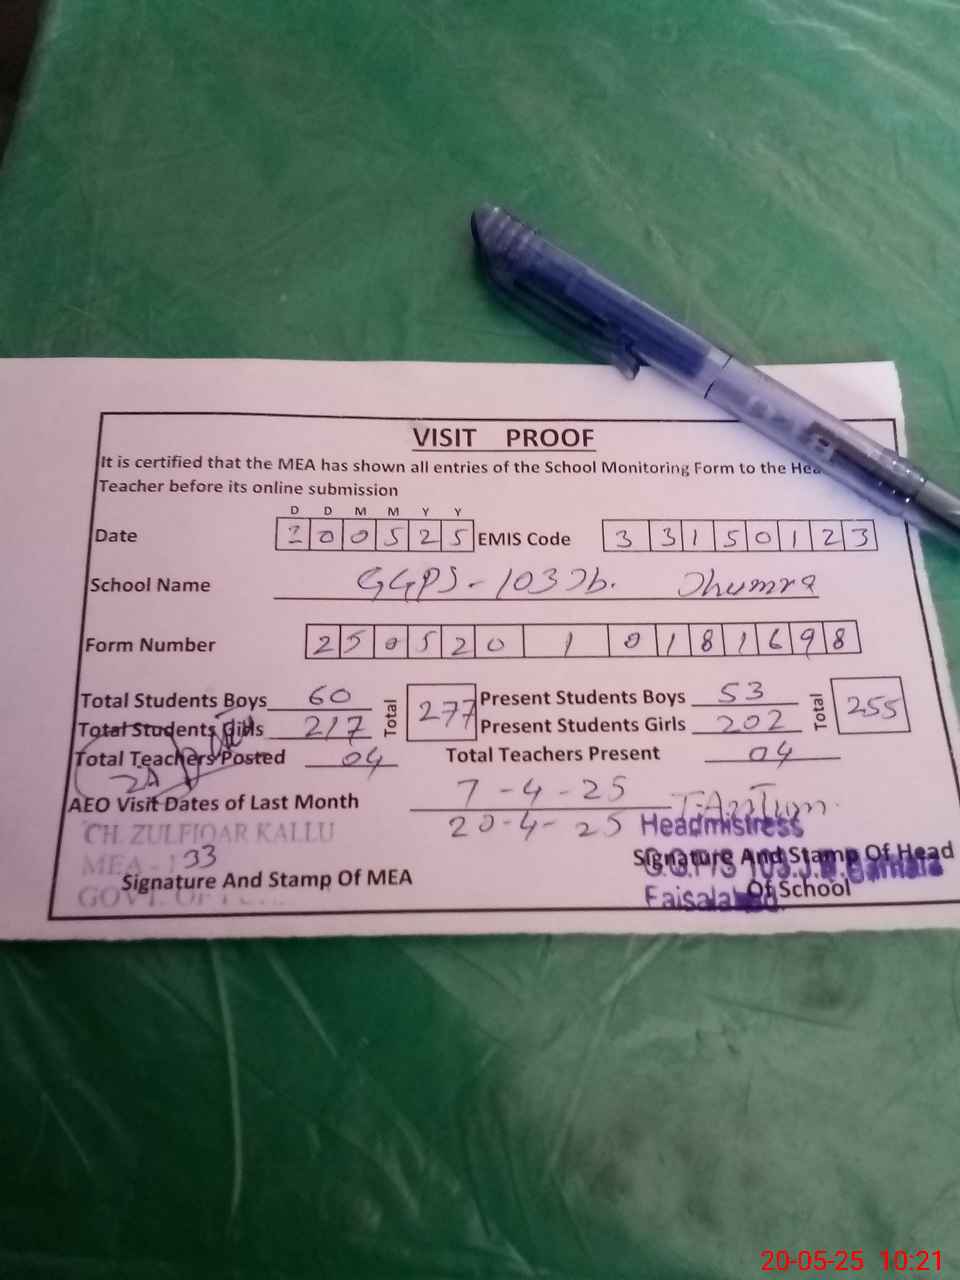 VISIT PROOF
It is certified that the MEA has shown all entries of the School Monitoring Form to the Hea
Teacher before its online submission
D D M M Y Y
Date 2 0 0 5 2 5 EMIS Code 3 3 1 5 0 1 2 3
School Name GGPS - 103 Jb. Jhumra
Form Number 2 5 0 5 2 0 1 0 1 8 1 6 9 8
Total Students Boys 60 Total 277 Present Students Boys 53 Total 255
Total Students Girls 217 Present Students Girls 202
Total Teachers Posted 04 Total Teachers Present 04
AEO Visit Dates of Last Month 7-4-25
20-4-25
CH. ZULFIQAR KALLU
MEA - 33
GOVT. OF
Signature And Stamp Of MEA
Headmistress
G.G.P/S 103.J.B.
Faisalabad.
Signature And Stamp Of Head
Of School
20-05-25 10:21